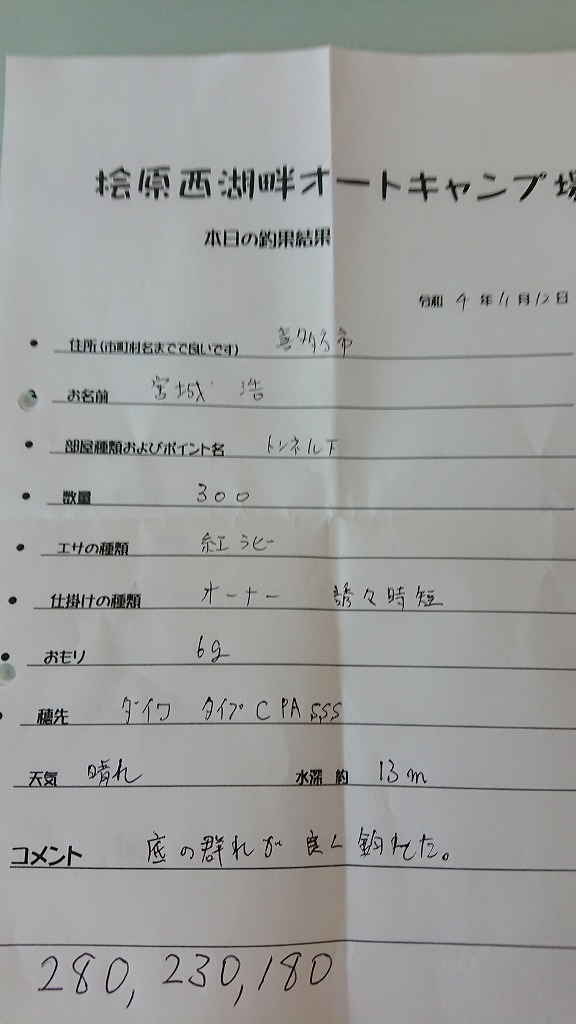 桧原西湖畔オートキャンプ場
本日の釣果結果
令和 4 年 11 月 12 日
住所(市町村名までで良いです) 喜多方市
お名前 宮城 浩
部屋種類およびポイント名 トンネル下
数量 300
エサの種類 紅ラビー
仕掛けの種類 オーナー 誘々時短
おもり 6g
穂先 ダイワ タイプC PA SSS
天気 晴れ 水深 約 13m
コメント 底の群れが良く釣れた。
280, 230, 180